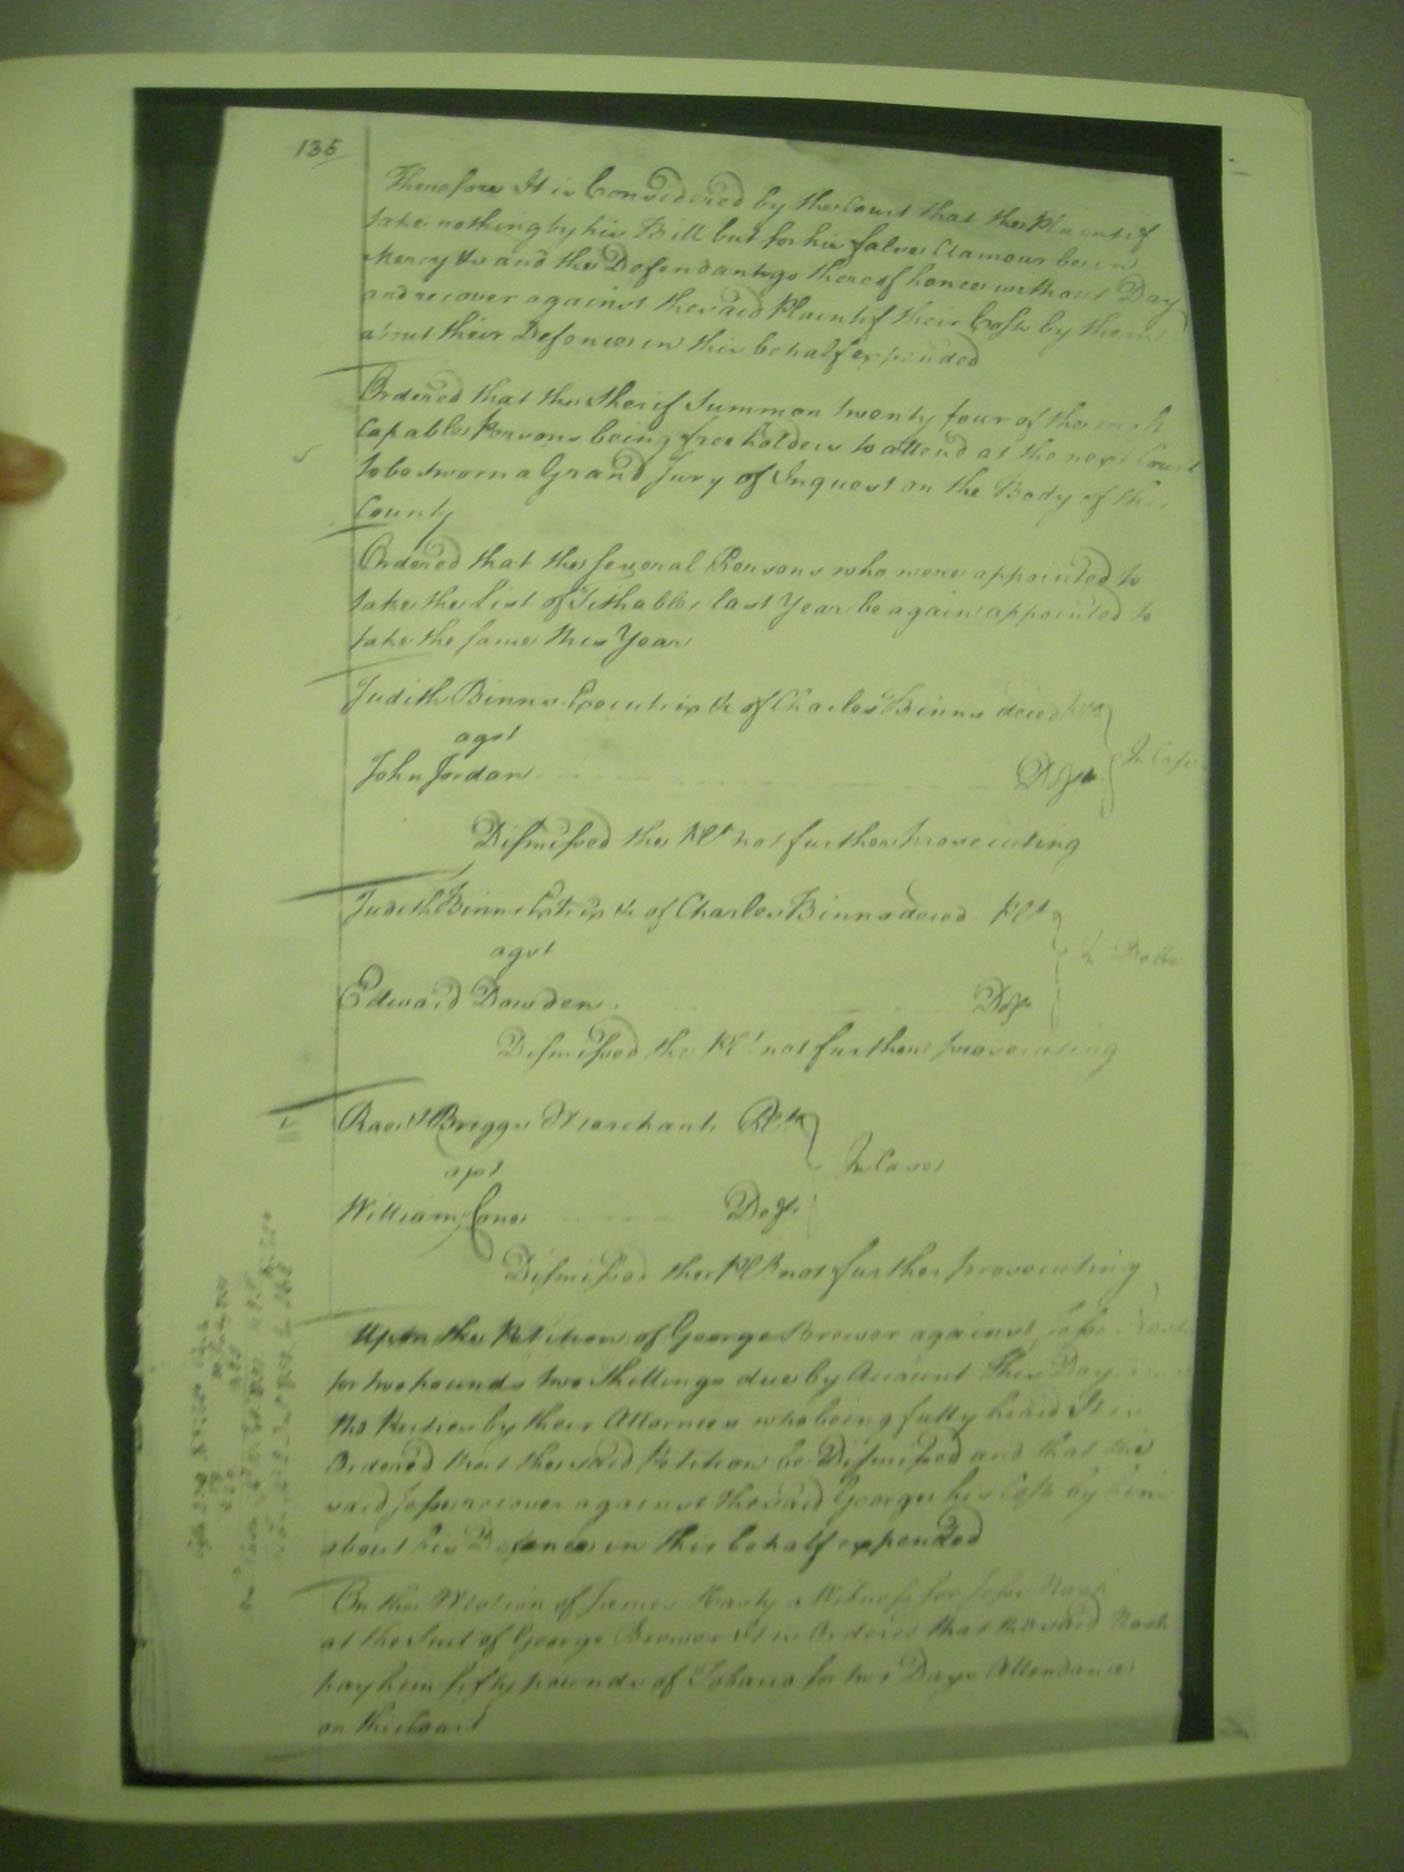 135
Therefore It is Considered by the Court that the Plaintif
take nothing by his Bill but for his false Clamour be in
Mercy &c and the Defendants go thereof hence without Day
and recover against the said Plaintif their Costs by them
about their Defence in this behalf expended
Ordered that the Sherif Summon twenty four of the most
Capable Persons being freeholders to attend at the next Court
to be sworn a Grand Jury of Inquest on the Body of this
County
Ordered that the several Persons who were appointed to
take the List of Tithables last Year be again appointed to
take the same this Year
Judith Binns Executrix &c of Charles Binns deced
agst
John Jordan Deft
In Case
Dismissed the Plt not further prosecuting
Judith Binns Extrix &c of Charles Binns deced Plt
agst
Edward Dowden Deft
In Debt
Dismissed the Plt not further prosecuting
Briggs Merchant Plt
agst
In Case
William Deft
Dismissed the Plt not further prosecuting
Upon the Petition of George Brewer against Jesse
for two pounds two Shillings due by Account This Day came
the Parties by their Attornies who being fully heard It is
Ordered that the said Petition be Dismissed and that the
said Jesse recover against the said George his Costs by him
about his Defence in this behalf expended
On the Motion of James a Witness for Jesse
at the Suit of George Brewer It is Ordered that the said
pay him fifty pounds of Tobacco for two Days Attendance
on this Court